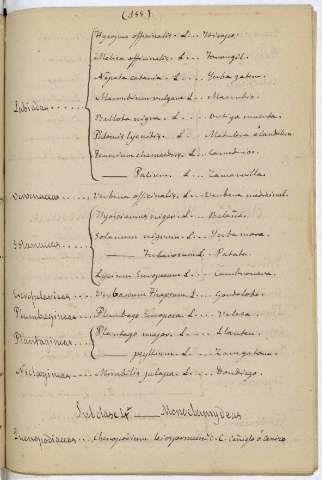 (155)
Hyssopus officinalis. L... Hisopo.
Melisa officinalis. L... Toronjil.
Nepeta cataria. L... Yerba gatera.
Labiadas...... Marrubium vulgare L... Marrubio.
Ballota nigra. L... Ortiga muerta.
Phlomis lychnitis. L... Matulera ó candilera
Teucrium chamaedris. L... Camedrios.
—— Polium. L... Zamarrilla.
Verbenaceas... Verbena officinalis. L... Verbena medicinal.
Hyosciamus niger. L... Beleño.
Solanaceas... Solanum nigrum. L... Yerba mora.
—— Tuberosum L... Patata.
Lycium Europaeum L... Cambronera.
Escrofulariceas... Verbascum Thapsum. L... Gordolobo.
Plumbagineas... Plumbago Europaea L... Velesa.
Plantagineas... Plantago major. L... Llanten.
—— psyllium. L... Zaragatona.
Nictagineas... Mirabilis jalapa. L... Dondiego.
Subclase 4ª —— Monoclamydeas
Quenopodiaceas Chenopodium L. Ceñiglo ó Cenizo